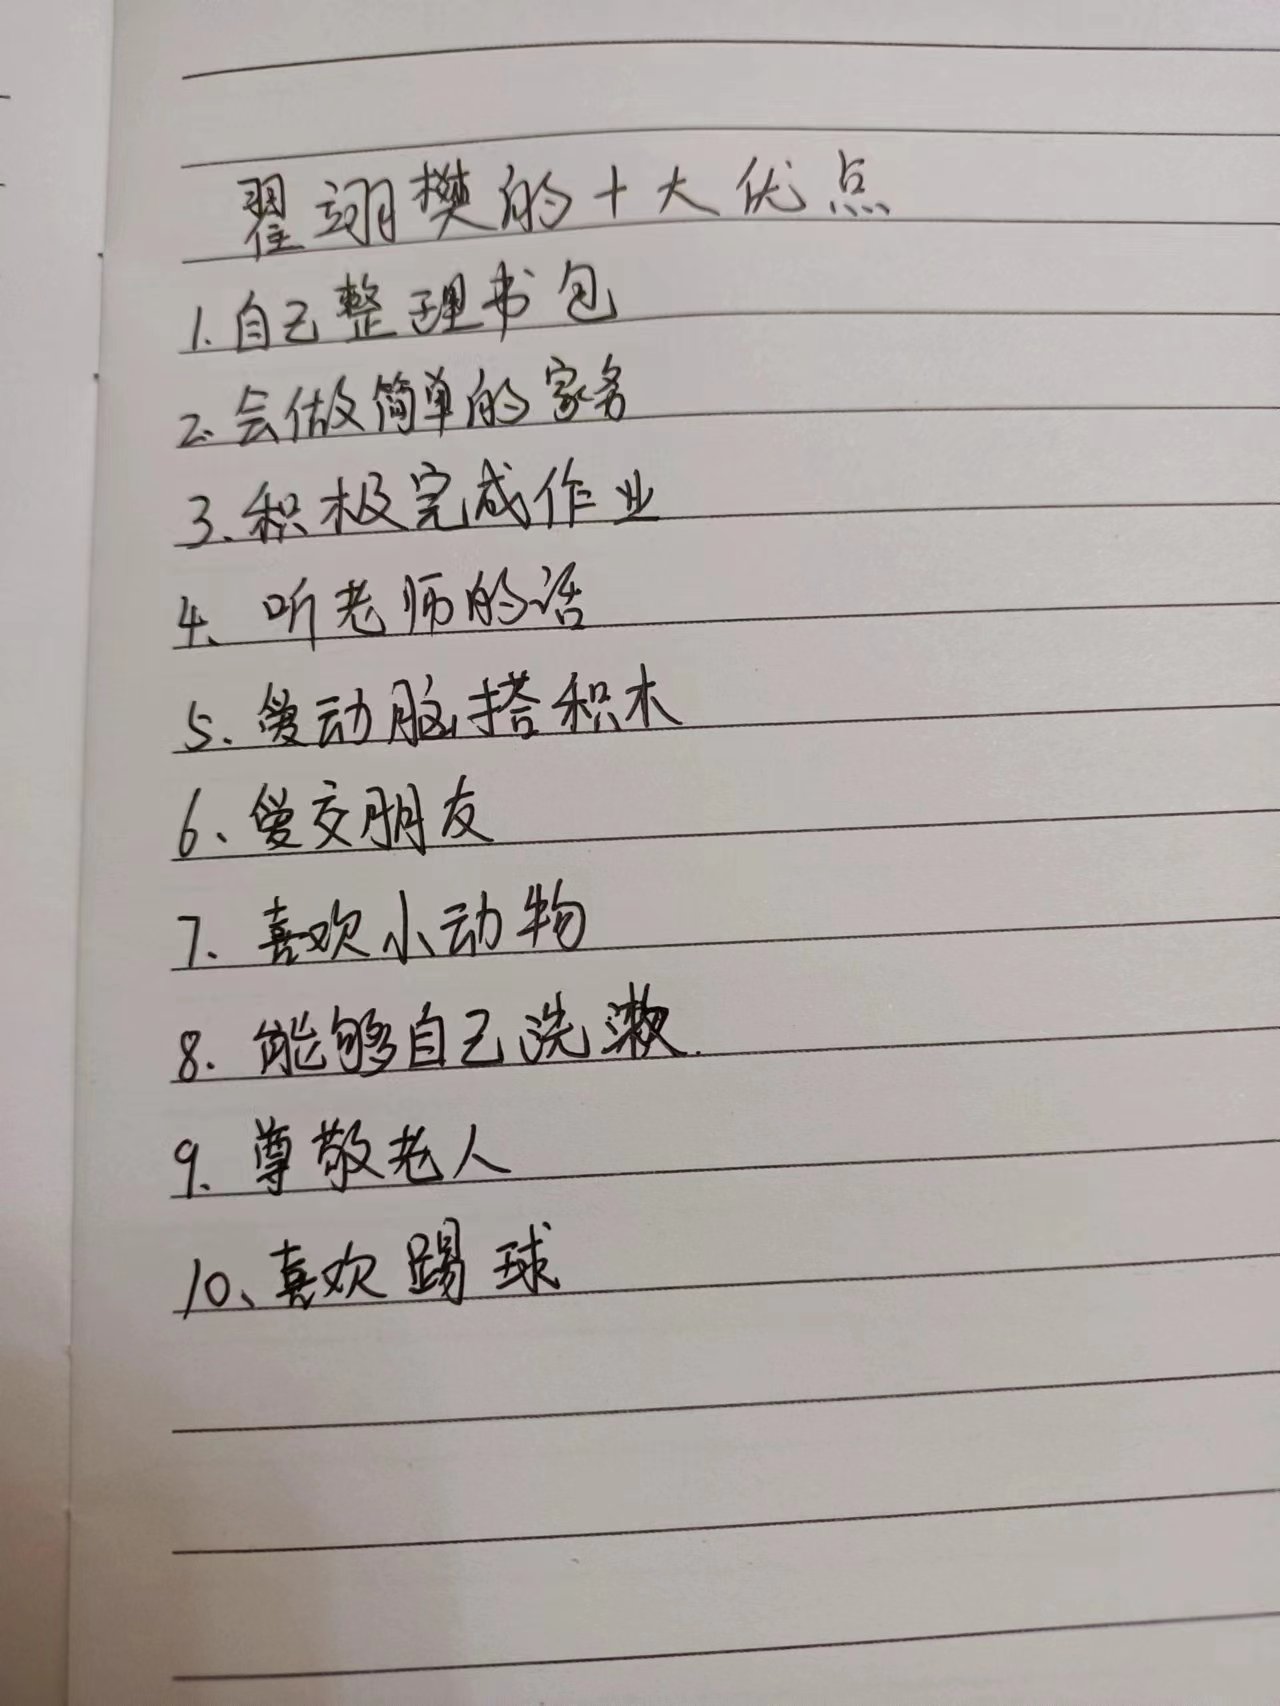 翟翊樊的十大优点
1.自己整理书包
2.会做简单的家务
3.积极完成作业
4、听老师的话
5.爱动脑搭积木
6、爱交朋友
7.喜欢小动物
8.能够自己洗漱.
9.尊敬老人
10、喜欢踢球